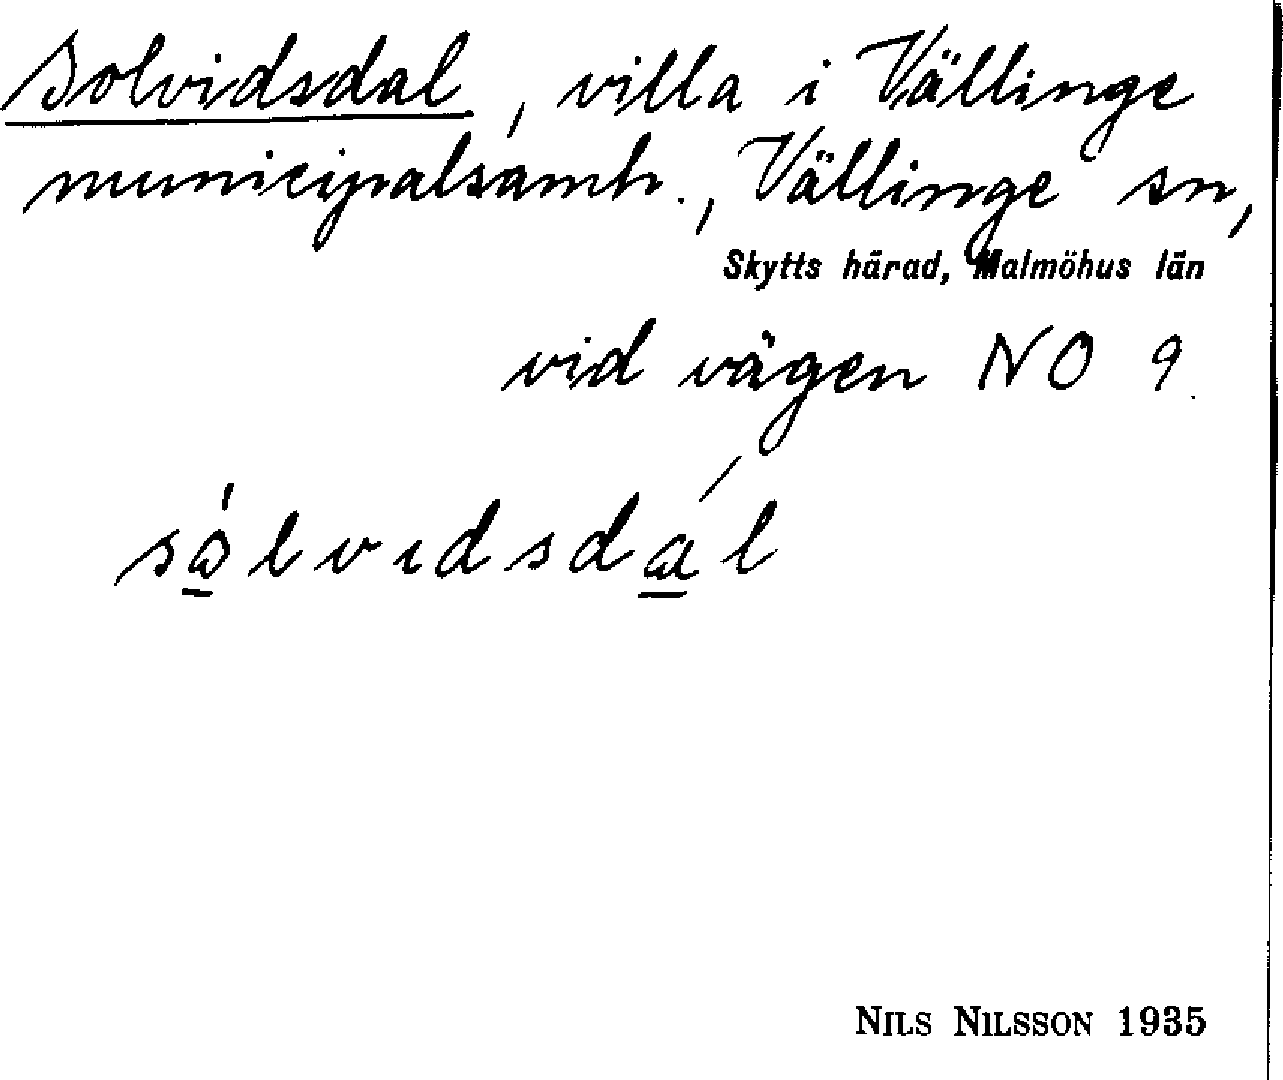 Solvidsdal, villa i Vällinge
municipalsamh., Vällinge sn,
Skytts härad, Malmöhus län
vid vägen NO 9.
NILS NILSSON 1935